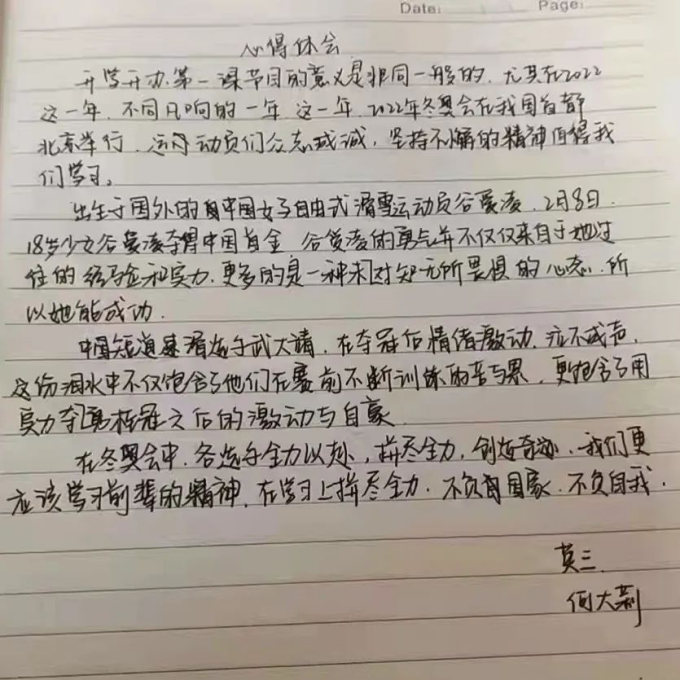 Date: Page:
心得体会
开学开办第一课节目的意义是非同一般的，尤其在2022
这一年，不同凡响的一年，这一年，2022年冬奥会在我国首都
北京举行，运动员们众志成诚，坚持不懈的精神值得我
们学习。
出生于国外的中国女子自由式滑雪运动员谷爱凌，2月8日，
18岁少女谷爱凌夺得中国首金，谷爱凌的勇气并不仅仅来自于她过
往的经验和实力，更多的是一种未对知无所畏惧的心态，所
以她能成功。
中国短道速滑选手武大靖，在夺冠后情绪激动，泣不成声，
这份泪水中不仅饱含了他们在赛前不断训练的苦与累，更包含了用
实力夺桂冠之后的激动与自豪
在冬奥会中，各选手全力以赴，拼尽全力，创造奇迹，我们更
应该学习前辈的精神，在学习上拼尽全力，不负国家，不负自我。
英三
何大